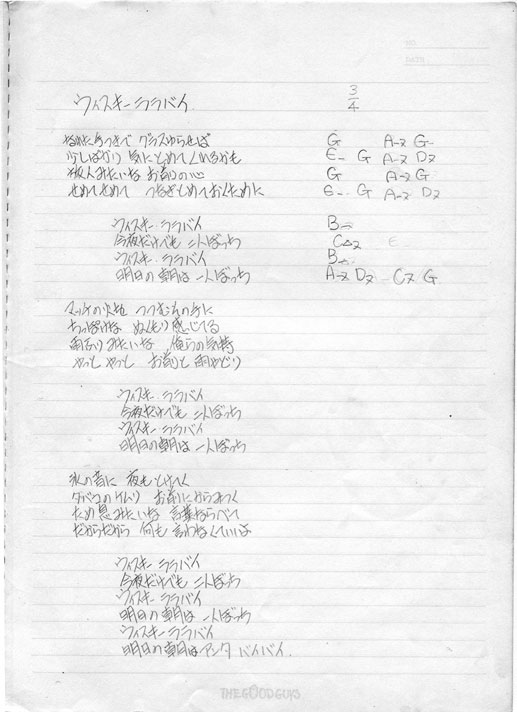 ウィスキーララバイ
3/4
なれた手つきで グラスゆらせば G A-7 G
少しばかり 気にとめてくれるかも E- G A-7 D7
旅人みたいな お前の心 G A-7 G
せめてせめて つなぎとめておくために E- G A-7 D7
ウィスキーララバイ B-
今夜だけでも 二人ぼっち C△7 E
ウィスキーララバイ B-
明日の朝は 一人ぼっち A-7 D7 C7 G
マッチの火を つつむ
ちっぽけな ぬくもり感じてる
雨ふりみたいな 俺らの気持
やっと やっと お前と雨やどり
ウィスキーララバイ
今夜だけでも 二人ぼっち
ウィスキーララバイ
明日の朝は 一人ぼっち
氷の音に 夜もとけてく
タバコのケムリ お前にからみつく
ため息みたいな 言葉ならべて
だからだから 何も言わなくていいよ
ウィスキーララバイ
今夜だけでも 二人ぼっち
ウィスキーララバイ
明日の朝は 一人ぼっち
ウィスキーララバイ
明日の朝はアンタ バイバイ
THE GOOD GUYS